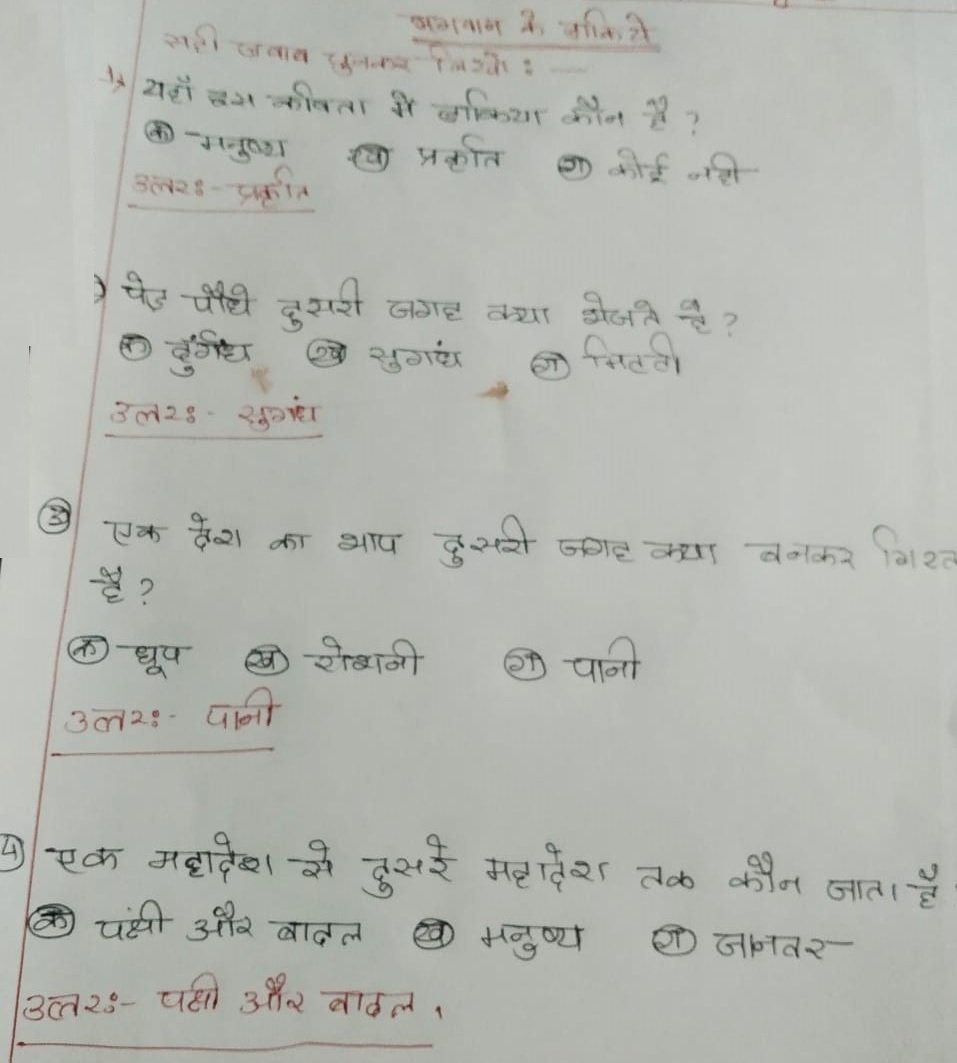 भगवान के डाकिये
सही जवाब चुनकर लिखो :—
1) यहाँ इस कविता में डाकिया कौन है ?
(क) मनुष्य (ख) प्रकृति (ग) कोई नही
उत्तरः- प्रकृति
) पेड पौधे दुसरी जगह क्या भेजते है ?
(क) दुर्गंध (ख) सुगंध (ग) मिटटी
उत्तरः- सुगंध
(3) एक देश का भाप दुसरी जगह क्या बनकर गिरत
है ?
(क) धूप (ख) रोशनी (ग) पानी
उत्तरः- पानी
4) एक महादेश से दुसरे महादेश तक कौन जाता है
(क) पंक्षी और बादल (ख) मनुष्य (ग) जानवर
उत्तरः- पक्षी और बादल .